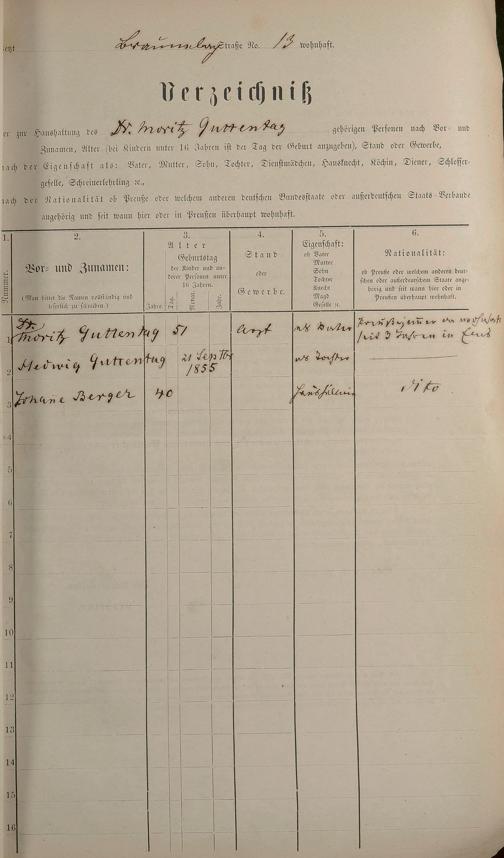 Braunsberg straße No. 13 wohnhaft.
Verzeichniß
er zur Haushaltung des Dr. Moritz Guttentag gehörigen Personen nach Vor- und
Zunamen, Alter (bei Kindern unter 16 Jahren ist der Tag der Geburt anzugeben), Stand oder Gewerbe,
nach der Eigenschaft als: Vater, Mutter, Sohn, Tochter, Dienstmädchen, Hausknecht, Köchin, Diener, Schlosser-
geselle, Schreinerlehrling ꝛc.,
nach der Nationalität ob Preuße oder welchem anderen deutschen Bundesstaate oder außerdeutschen Staats-Verbande
angehörig und seit wann hier oder in Preußen überhaupt wohnhaft.
1.
Nummer.
2.
Vor- und Zunamen:
(Man bittet die Namen vollständig und
leserlich zu schreiben.)
3.
Alter
Geburtstag
der Kinder und an-
derer Personen unter
16 Jahren.
Jahre.
Tag.
Monat.
Jahr.
4.
Stand
oder
Gewerbe.
5.
Eigenschaft:
ob Vater
Mutter
Sohn
Tochter
Knecht
Magd
Geselle ꝛc.
6.
Nationalität:
ob Preuße oder welchem anderen deut-
schen oder außerdeutschen Staate ange-
hörig und seit wann hier oder in
Preußen überhaupt wohnhaft.
1 Dr. Moritz Guttentag 51 Arzt als Vater
seit 3 Jahren in
2 Hedwig Guttentag 21 Septbr 1855 als Tochter
3 Johane Berger 40 dito
4
5
6
7
8
9
10
11
12
13
14
15
16